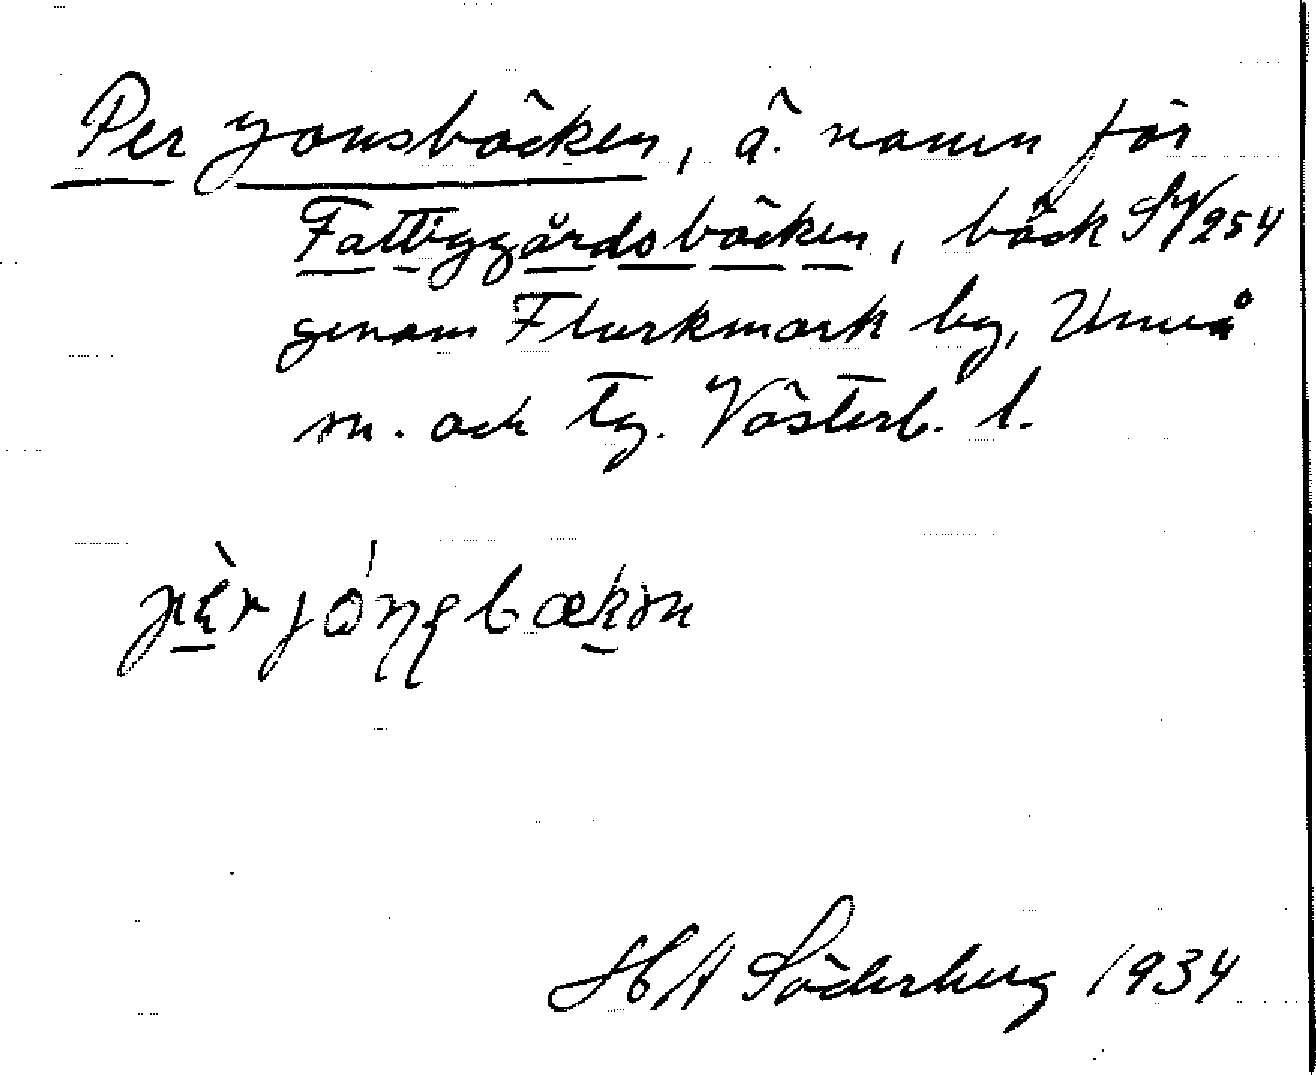 Per Jonsbäcken, ä. namn för
Fattiggårdsbäcken, bäck SV 254
genom Flurkmark by, Umeå
sn. och tg. Västerb. l.
HA Söderberg 1934